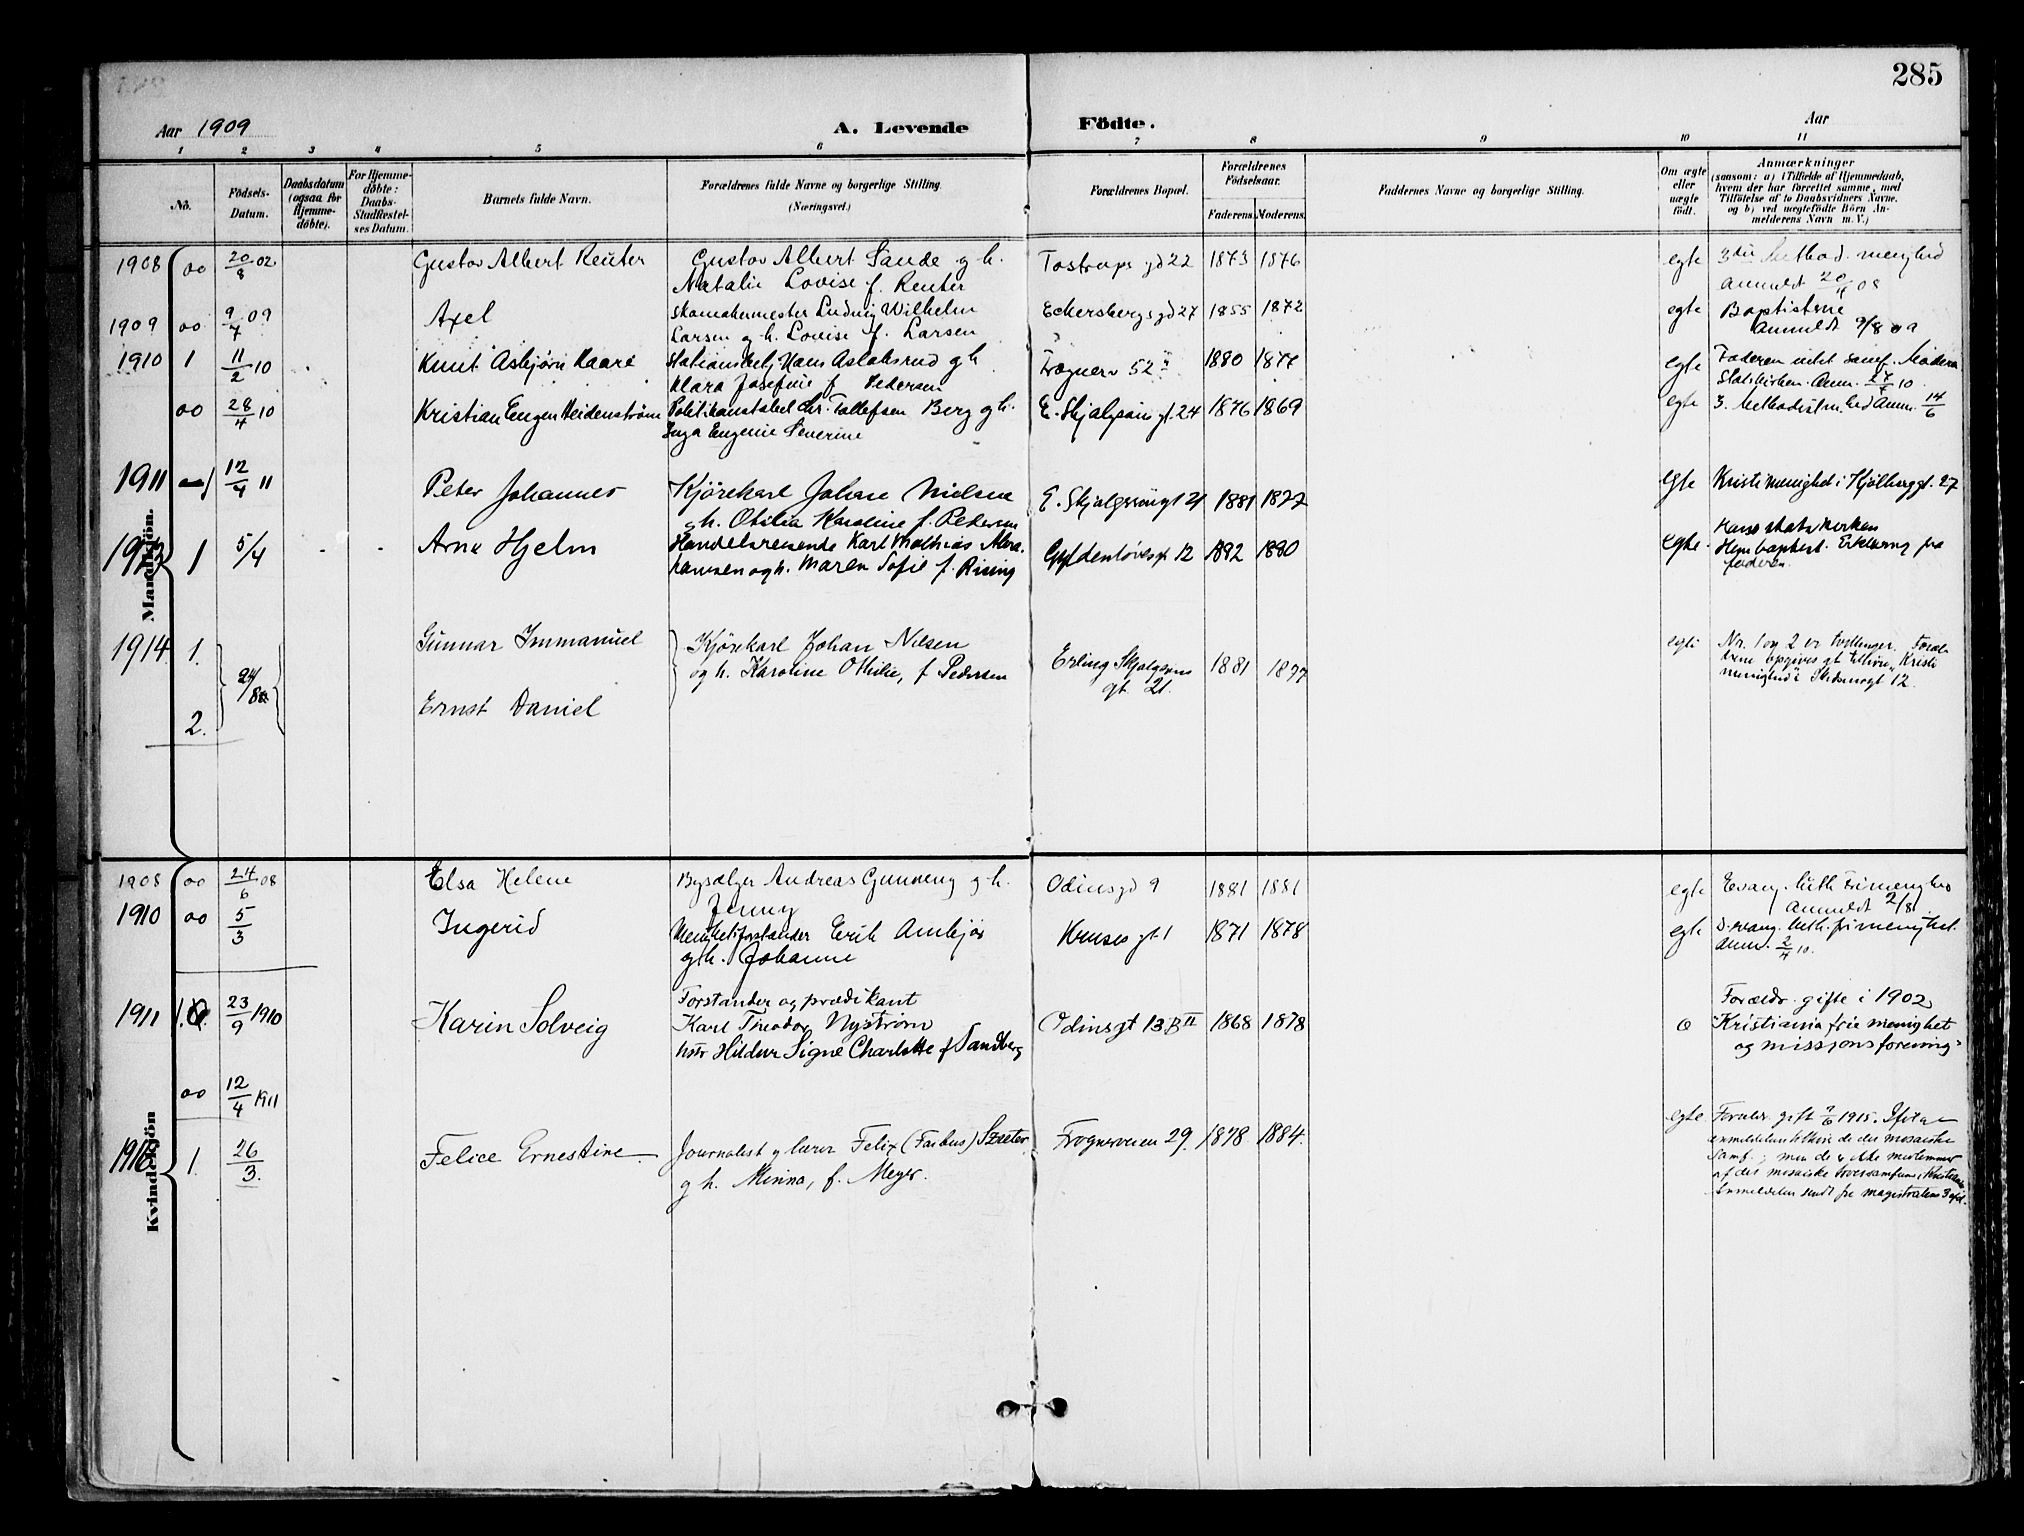 285
Aar 1909 A. Levende Födte. Aar
1 2 3 4 5 6 7 8 9 10 11
No.
Födsels-Datum.
Daabsdatum (ogsaa for Hjemme-döbte).
For Hjemme-döbte: Daabs-Stadfæstel-ses Datum.
Barnets fulde Navn.
Forældrenes fulde Navne og borgerlige Stilling. (Næringsvei.)
Forældrenes Bopæl.
Forældrenes Födselsaar.
Faderens. Moderens.
Faddernes Navne og borgerlige Stilling.
Om ægte eller uægte födt.
Anmærkninger
(saasom: a) i Tilfælde af Hjemmedaab,
hvem der har forrettet samme, med
Tilföielse af to Daabsvidners Navne.
og b) ved uægtefödte Börn An-
melderens Navn m. V.)
Mandkjön.
1908 oo 20/8 02 Gustav Albert Reuter Gustav Albert Sande g h. Tostrups gd 22 1873 1876 egte 3die Method. menighed
Natalie Lovise f. Reuter anmeldt 08
1909 oo 9/4 09 Axel Skomakermester Ludvig Wilhelm Eckersbergs gd 27 1855 1872 egte Baptisterne
Larsen g h. Lovise f. Larsen Anmeldt 9/8 09
1910 1 11/2 10 Knut Asbjørn Kaare Hans Aslaksrud g h 1880 1877 egte Faderen intet samf. Moderen
Klara Josefine f Pedersen Statskirken. Anm. 10
oo 28/4 10 Kristian Eugen Heidenstrøm Politikonstabel Chr. Tollefsen Berg g h. E. Skjalgsøn gt. 24 1876 1869 egte 3. Anm. 14/6
Inga Eugenie Severine
1911 12/4 11 Peter Johannes Kjørekarl Johan Nielsen E. Skjalgsøngt 21 1881 1877 egte Kristi menighed i 27
g h. Otilia Karoline f. Pedersen
1913 1 5/4 Arne Hjelm Handelsreisende Karl Mathias Abra- Gyldenløvesgt 12 1882 1880 egte. Hans statskirken
hamsen og h. Maren Sofie f. Rising Hun baptist. Erklæring fra
faderen.
1914 1. Gunnar Immanuel Kjørekarl Johan Nilsen Erling Skjalgsøns 1881 1877 egte Nr. 1 og 2 er tvillinger. Foræl-
24/8 og h. Karoline Othilie, f Pedersen gt. 21. drene opgives at tilhøre "Kristi
2. Ernst Daniel menighed i 12.
Kvindekjön
1908 oo 24/6 08 Elsa Helene Andreas Gunneng g h. Odinsgd 9 1881 1881 egte Evang. luth Frimenighed
Jenny Anmeldt 2/8
1910 oo 5/3 Ingerid Menighetsforstander Erik Ambjør Kruses gt 1 1871 1878 egte D. evang. luth. frimenighet.
g h. Johanne Anm. 2/4 10.
1911 23/9 1910 Karin Solveig Forstander og prædikant Odinsgt 13 B II 1868 1878 o Forældr. gifte i 1902
Karl Theodor Nystrøm "Kristiania frie menighet
Hildur Signe Charlotte f Sandberg og missionsforening"
oo 12/4 1911
1916 1. 26/3. Felice Ernestine Journalist g lærer Felix (Farbus) Szeter Frognerveien 29. 1878 1884. egte Forældr. gift 1915. Ifølge
g h. Minna, f. Meyer. anmeldelsen tilhøre de det mosaiske
samf., men de er ikke medlemmer
af det mosaiske troessamfund i Kristiania
Anmeldelse sendt fra magistratens 3 afd.